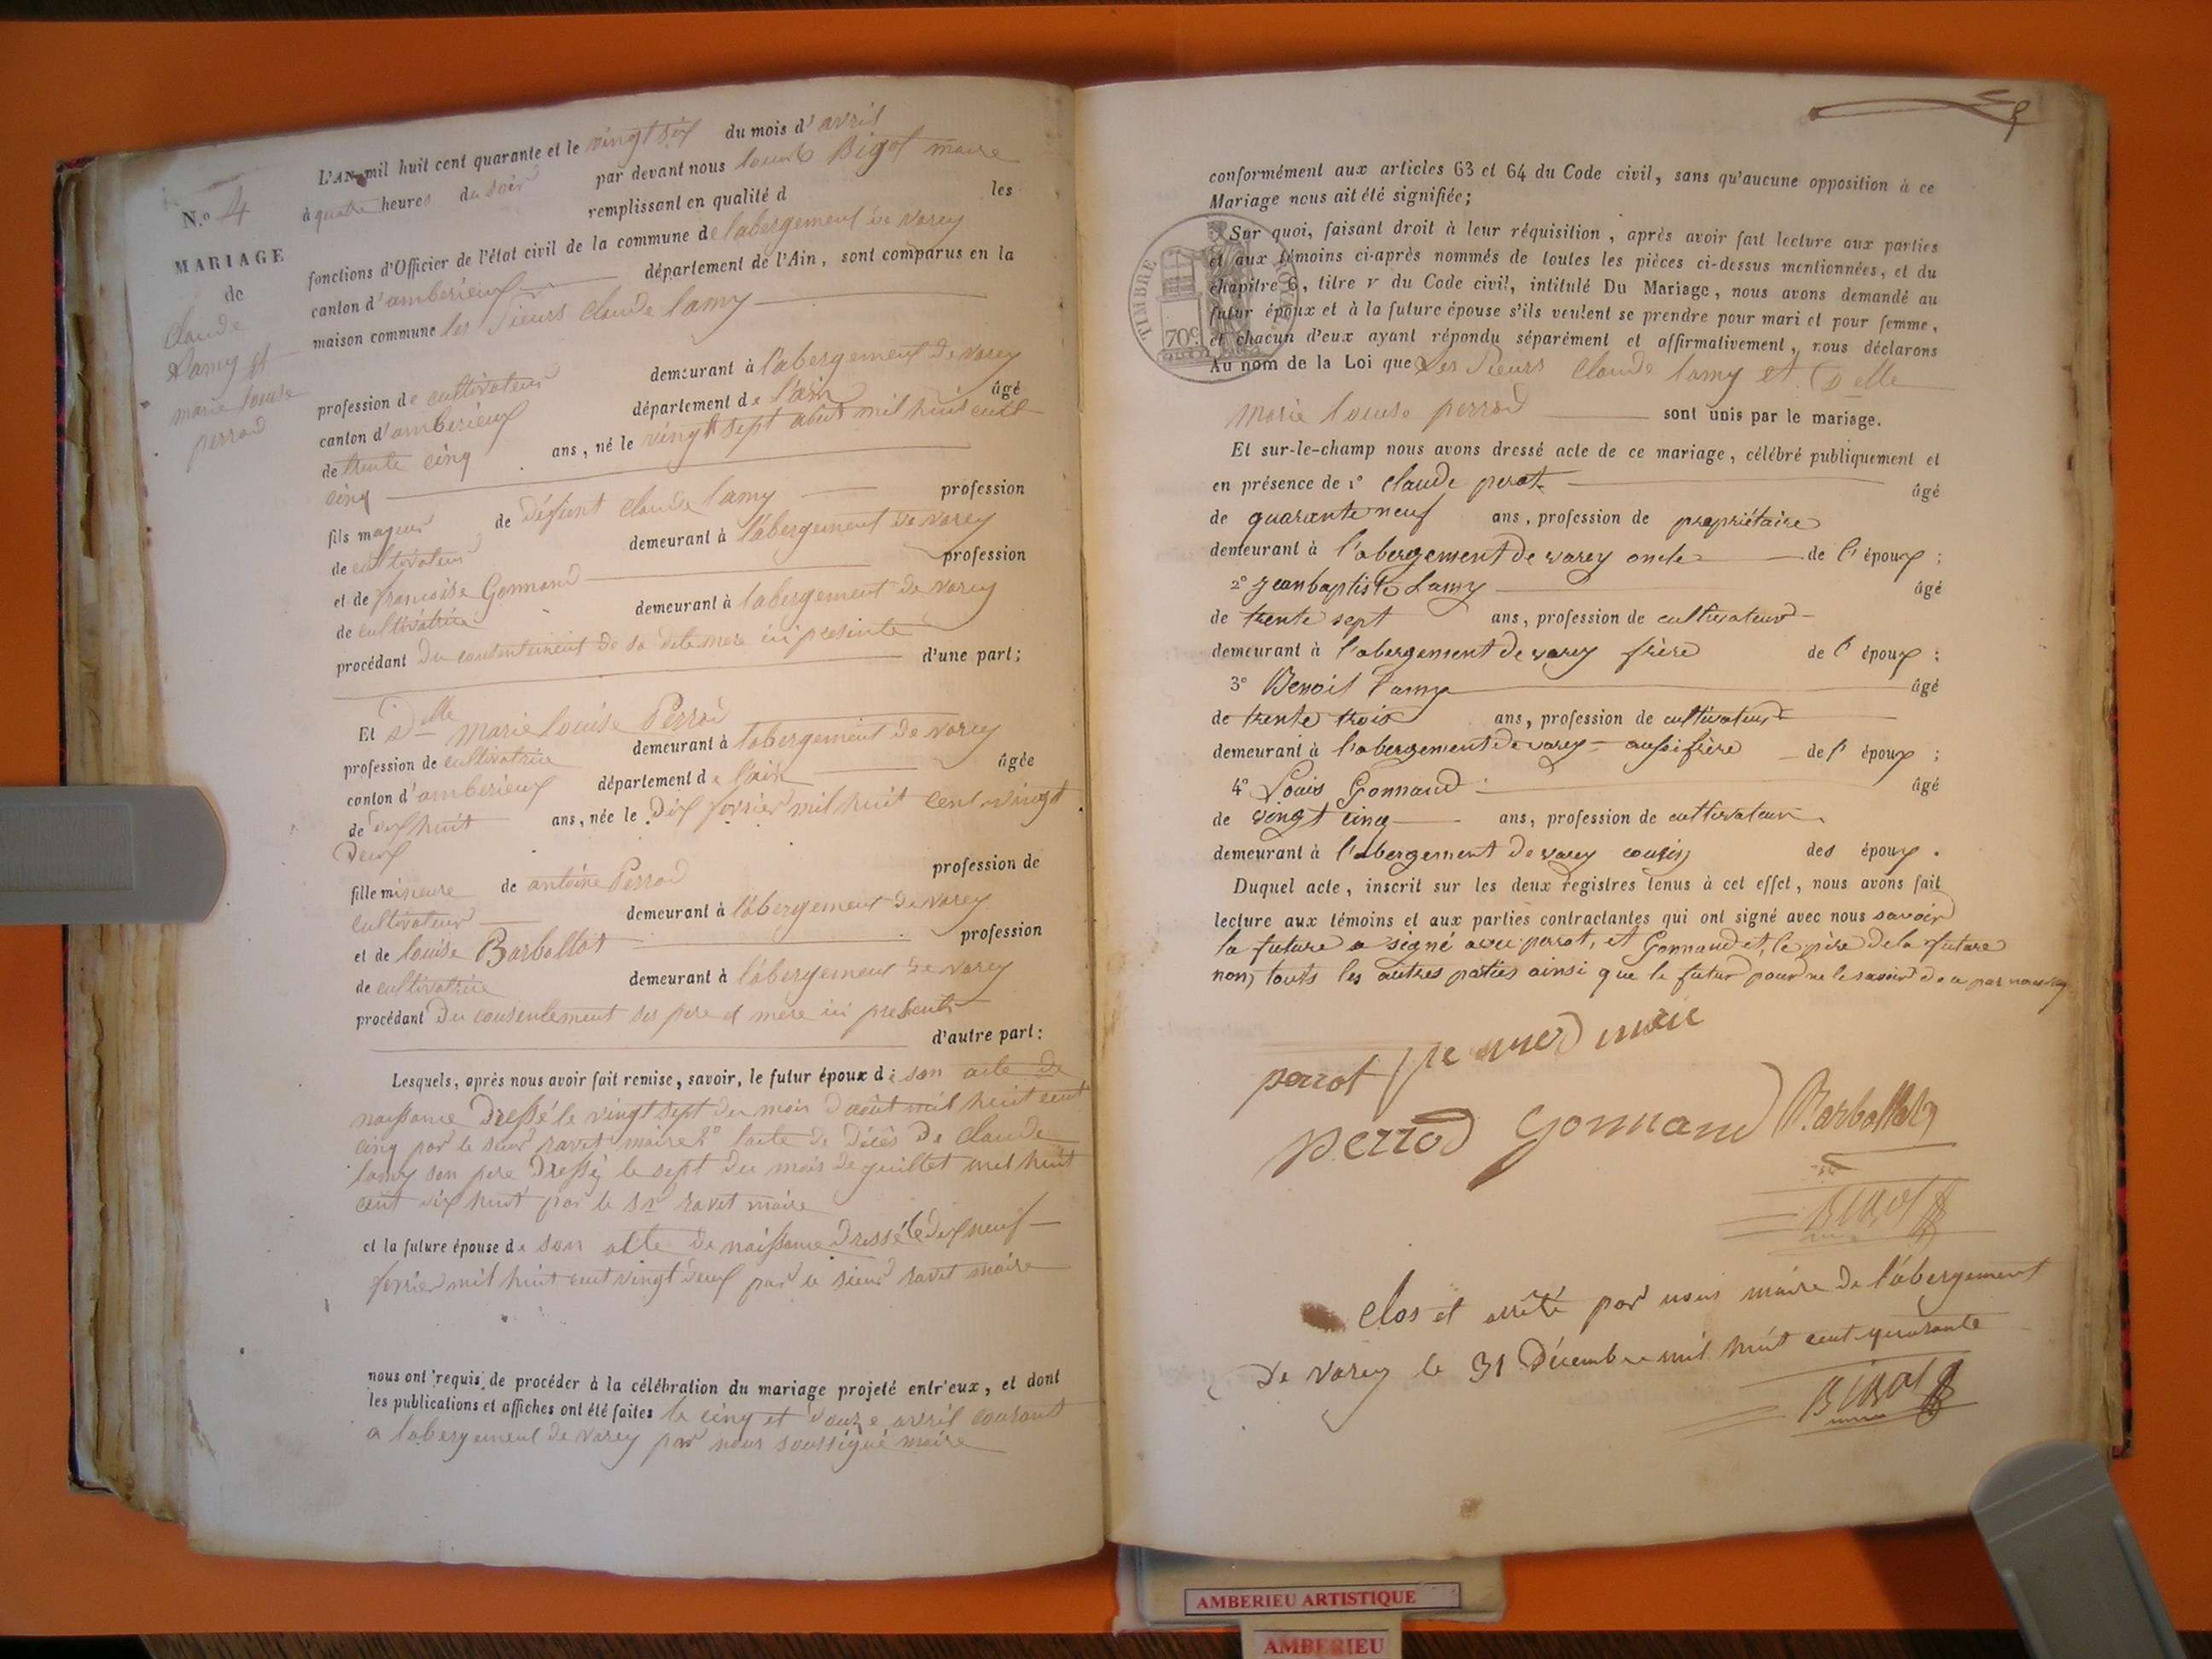 N.o 4
MARIAGE
de
Claude
Lamy et
marie louise
perrod
L'AN mil huit cent quarante et le vingt six du mois d'avril
à quatre heures du soir par devant nous Bigot maire
remplissant en qualité d les
fonctions d'Officier de l'état civil de la commune de labergement de varey
canton d'amberieux département de l'Ain, sont comparus en la
maison commune les sieurs Claude lamy
profession de cultivateur demeurant à l'abergement de varey
canton d'amberieux département de l'ain âgé
de trente cinq ans, né le vingt sept aout mil huit cent
cinq
fils majeur de défunt Claude lamy profession
de cultivateur demeurant à l'abergement de varey
et de francoise Gonnand profession
de cultivatrice demeurant à labergement de varey
procédant du consentement de sa dite mere ici presente
d'une part;
Et Delle Marie Louise Perrod
profession de cultivatrice demeurant à labergement de varey
canton d'amberieux département de l'ain âgée
de dix huit ans, née le dix fevrier mil huit cent vingt
deux
fille mineure de antoine Perrod profession de
cultivateur demeurant à l'abergement de varey
et de louise Barbollat profession
de cultivatrice demeurant à l'abergement de varey
procédant du consentement ses pere et mere ici presents
d'autre part:
Lesquels, après nous avoir fait remise, savoir, le futur époux de son acte de
naissance dressé le vingt sept du mois d'août mil huit cent
cinq par le sieur ravet maire 2º lacte de décès de Claude
lamy son pere dressé le sept du mois de juillet mil huit
cent dix huit par le sr ravet maire
et la future épouse de son acte de naissance dressé le dix neuf
fevrier mil huit cent vingt deux par le sieur ravet maire
nous ont requis de procéder à la célébration du mariage projeté entr'eux, et dont
les publications et affiches ont été faites le cinq et douze avril courant
a labergement de varey par nous soussigné maire
conformément aux articles 63 et 64 du Code civil, sans qu'aucune opposition à ce
Mariage nous ait été signifiée;
TIMBRE ROYAL
70c.
Sur quoi, faisant droit à leur réquisition, après avoir fait lecture aux parties
et aux témoins ci-après nommés de toutes les pièces ci-dessus mentionnées, et du
chapitre 6, titre v du Code civil, intitulé Du Mariage, nous avons demandé au
futur époux et à la future épouse s'ils veulent se prendre pour mari et pour femme,
et chacun d'eux ayant répondu séparément et affirmativement, nous déclarons
Au nom de la Loi que Les sieurs Claude lamy et Delle
Marie louise perrod sont unis par le mariage.
Et sur-le-champ nous avons dressé acte de ce mariage, célébré publiquement et
en présence de 1º claude perot âgé
de quarante neuf ans, profession de propriétaire
demeurant à l'abergement de varey oncle de l'époux;
2º Jeanbaptiste Lamy âgé
de trente sept ans, profession de cultivateur
demeurant à l'abergement de varey frère de l'époux;
3º Benoit Lamy âgé
de trente trois ans, profession de cultivateur
demeurant à l'abergement de varey aussi frère de l'époux;
4º Louis Gonnand âgé
de vingt cinq ans, profession de cultivateur
demeurant à l'abergement de varey cousin des époux.
Duquel acte, inscrit sur les deux registres tenus à cet effet, nous avons fait
lecture aux témoins et aux parties contractantes qui ont signé avec nous savoir
la future a signé avec perrot, et Gonnand et, le père de la future
non, touts les autres parties ainsi que le futur pour ne le savoir
perrot
perrod Gonnand Barbollat
BIGOT
Clos et arrêté par nous maire de l'abergement
de varey le 31 Décembre mil huit cent quarante
BIGOT
AMBERIEU ARTISTIQUE
AMBERIEU